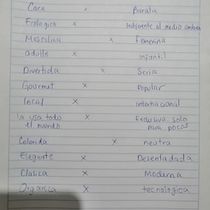 Cara x Barata
Ecologica x Indiferente al medio ambien
Masculina x Femenina
adulta x Infantil
Divertida x Seria
Gourmet x Popular
local x Internacional
La usa todo x Exclusiva solo
el mundo para pocos
Colorida x neutra
Elegante x Desenfadada
Clasica x Moderna
x tecnologica